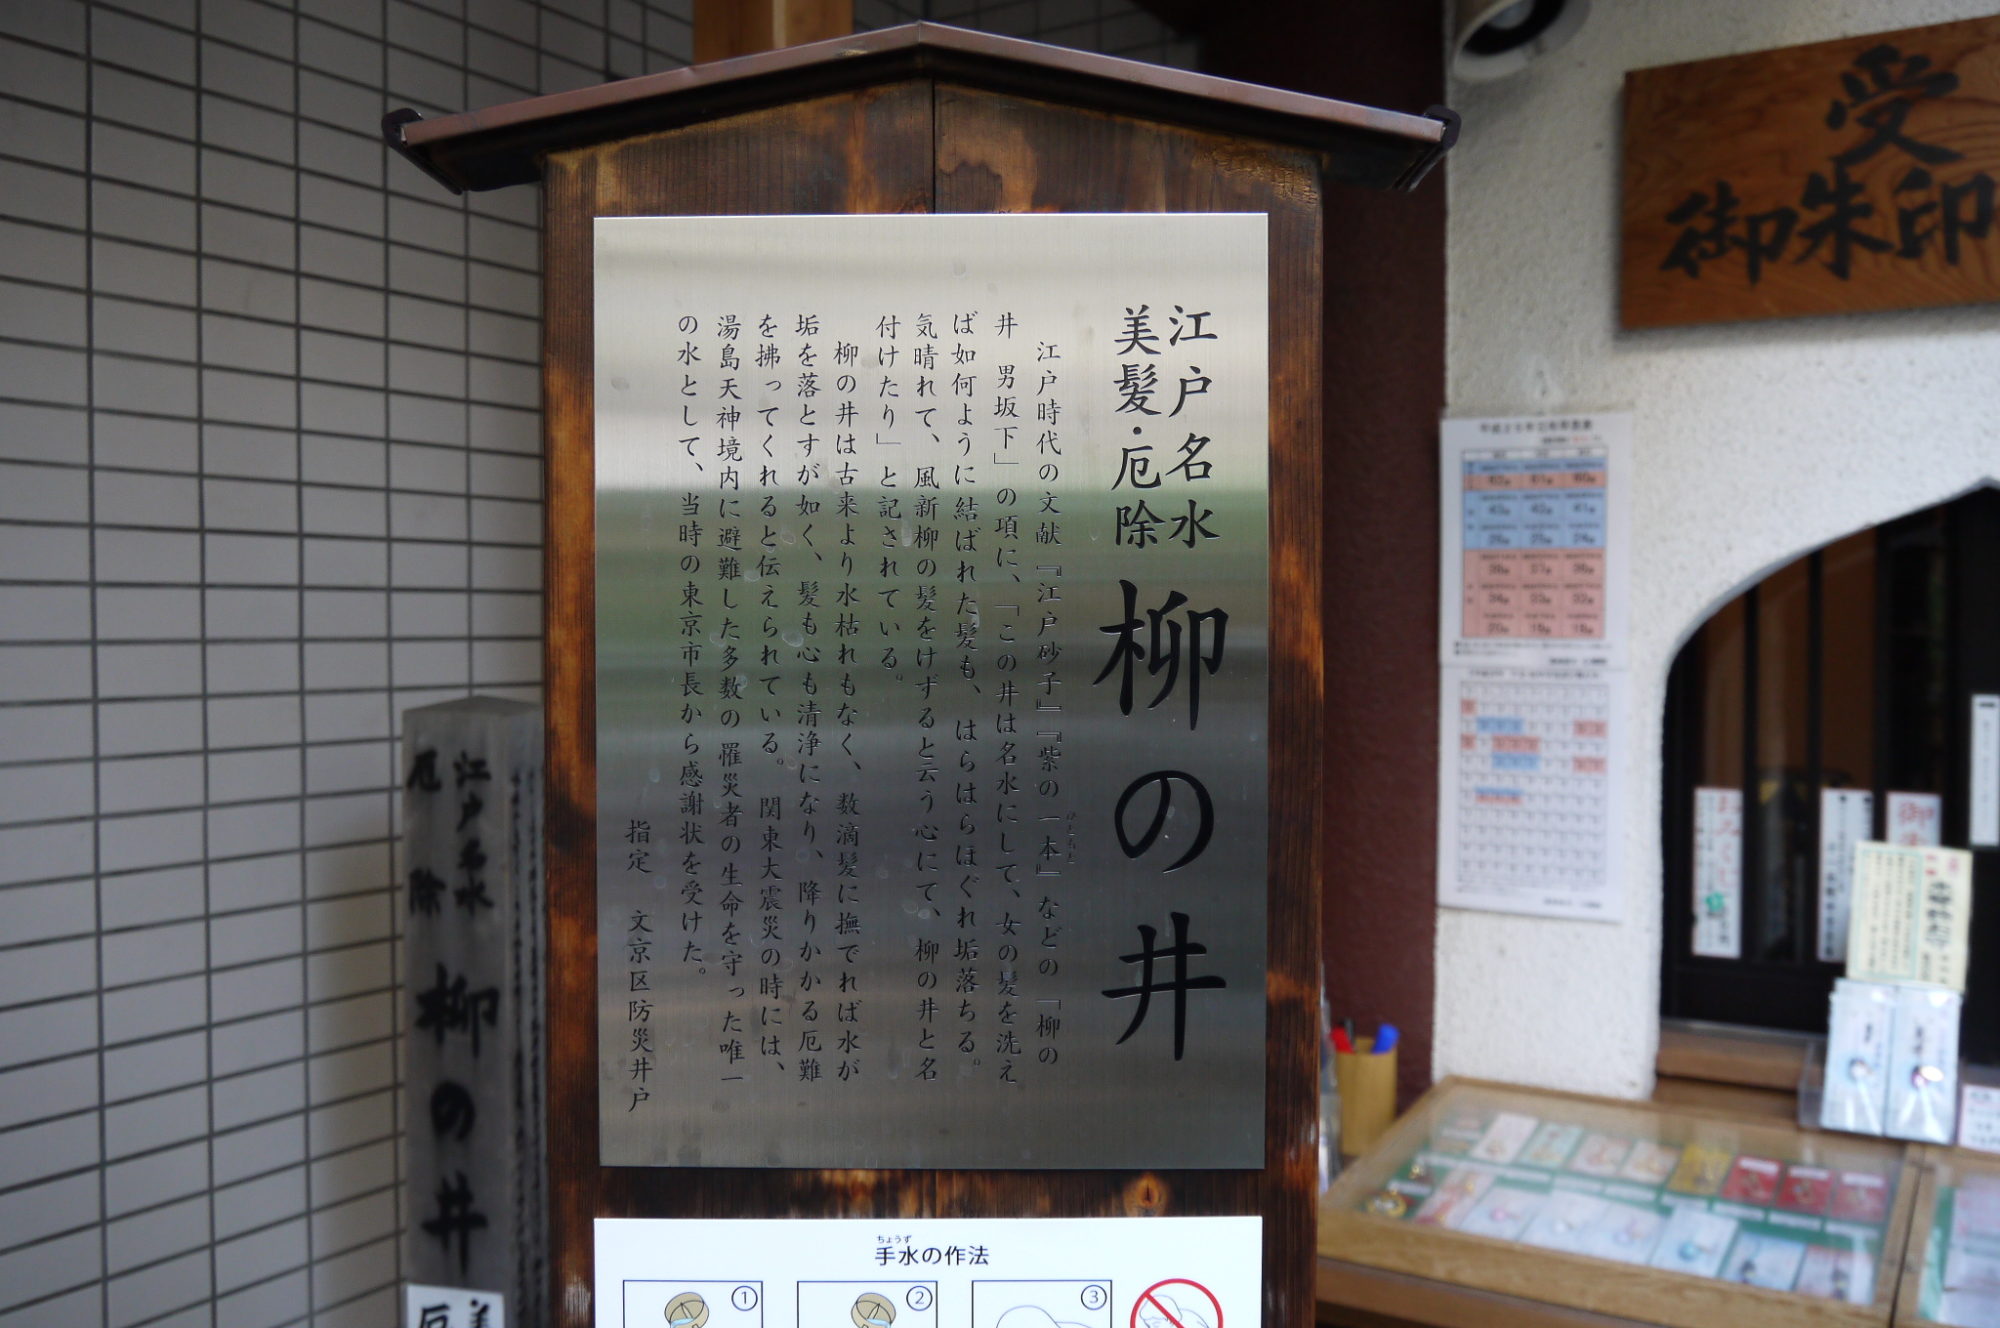 江戸名水
美髪・厄除
柳の井
江戸時代の文献『江戸砂子』『紫の一本』などの「柳の
ひともと
井 男坂下」の項に、「この井は名水にして、女の髪を洗え
ば如何ように結ばれた髪も、はらはらほぐれ垢落ちる。
気晴れて、風新柳の髪をけずると云う心にて、柳の井と名
付けたり」と記されている。
柳の井は古来より水枯れもなく、数滴髪に撫でれば水が
垢を落とすが如く、髪も心も清浄になり、降りかかる厄難
を拂ってくれると伝えられている。 関東大震災の時には、
湯島天神境内に避難した多数の罹災者の生命を守った唯一
の水として、当時の東京市長から感謝状を受けた。
指定 文京区防災井戸
ちょうず
手水の作法
①
②
③
受
御朱印
江戸名水
厄除
柳の井
美
厄